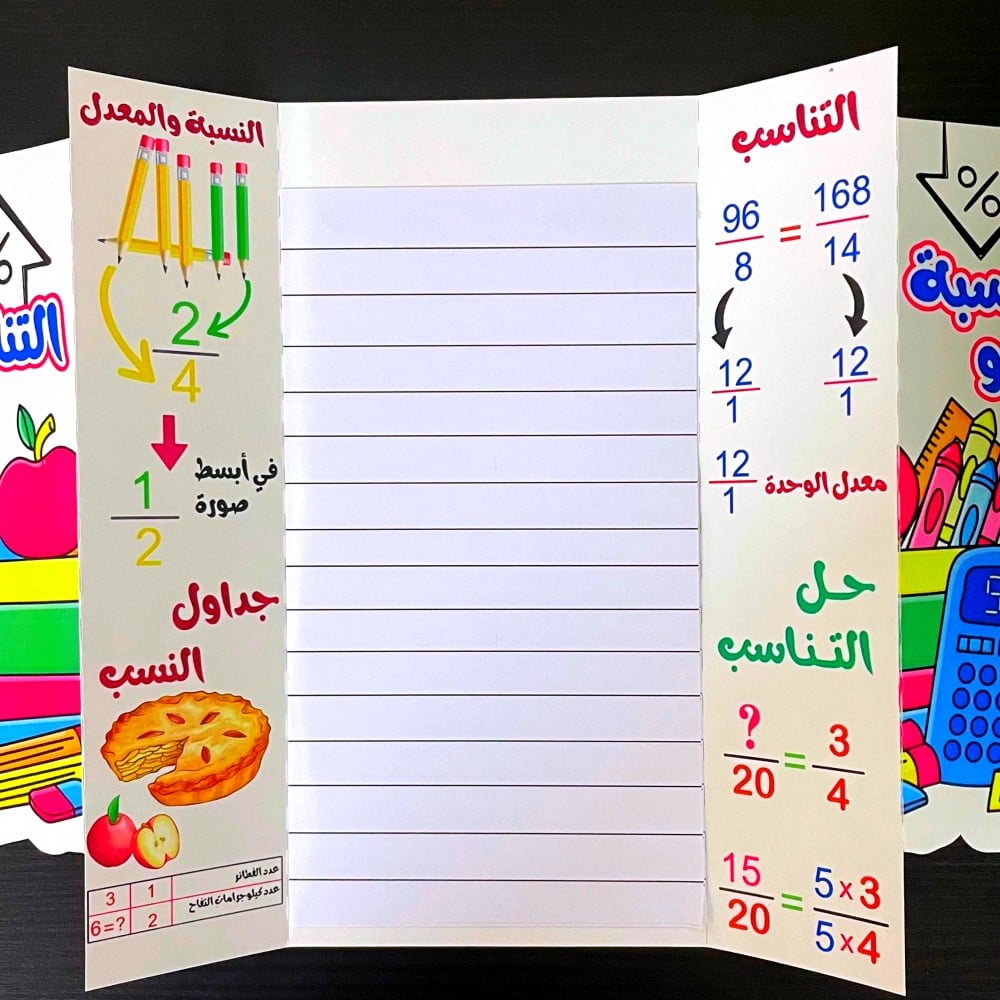 النسبة والمعدل
2
4
1
2
في أبسط
صورة
جداول
النسب
عدد الفطائر 1 3
عدد كيلوجرامات التفاح 2 ?=6
التناسب
96/8 = 168/14
12/1 12/1
12/1 معدل الوحدة
حل
التناسب
?/20 = 3/4
15/20 = 5x3/5x4
%
%
و